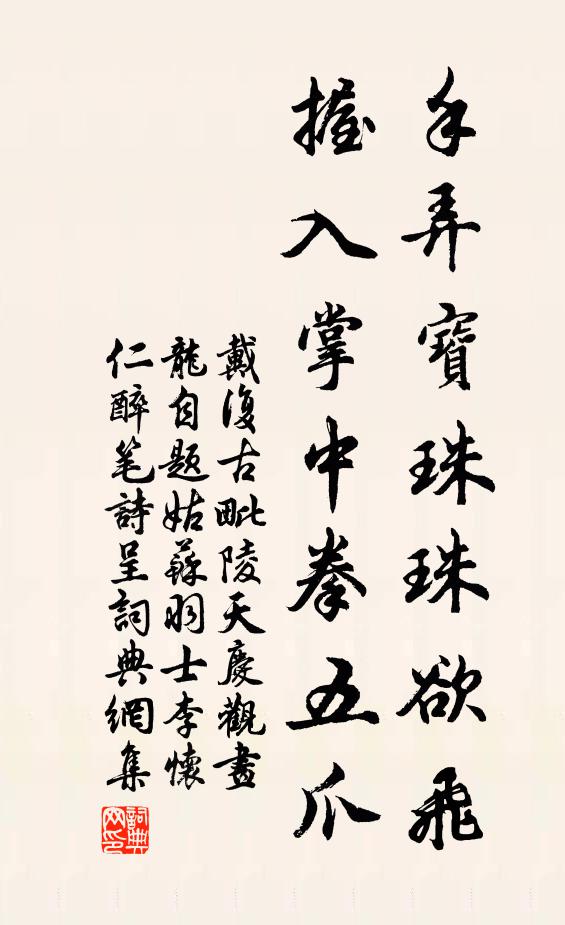 手弄寶珠珠欲飛
握入掌中拳五爪
戴復古毗陵天慶觀畫
龍自題姑蘇羽士李懷
仁醉笔詩呈詞典網集
詞典網印